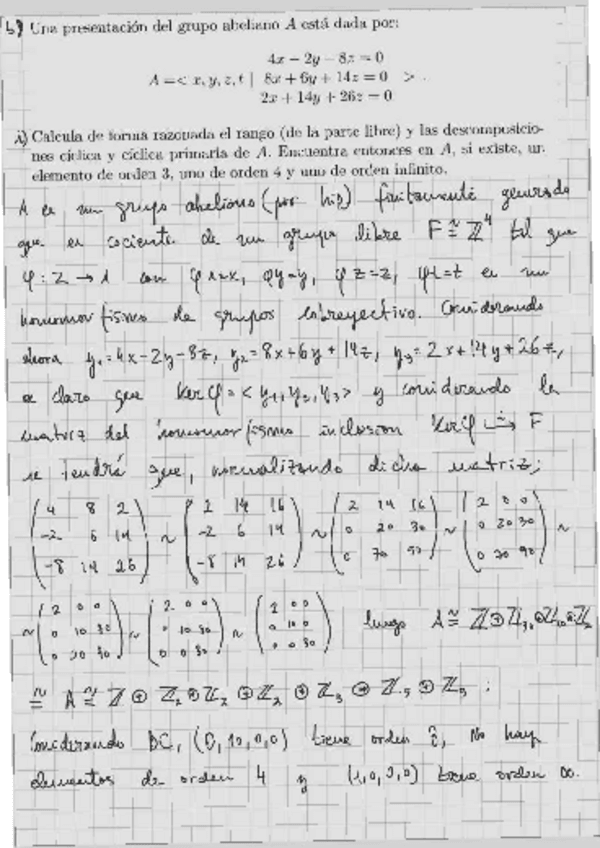 b) Una presentación del grupo abeliano A está dada por:
4x − 2y − 8z = 0
A =< x, y, z, t | 8x + 6y + 14z = 0 > .
2x + 14y + 26z = 0
i) Calcula de forma razonada el rango (de la parte libre) y las descomposicio-
nes cíclica y cíclica primaria de A. Encuentra entonces en A, si existe, un
elemento de orden 3, uno de orden 4 y uno de orden infinito.
A es un grupo abeliano (por hip) finitamente generado
que es cociente de un grupo libre F ≅ Z⁴ tal que
φ: Z → A con φx=x, φy=y, φz=z, φt=t es un
homomorfismo de grupos sobreyectivo. Considerando
ahora y₁=4x−2y−8z, y₂=8x+6y+14z, y₃=2x+14y+26z,
es claro que Kerφ=<y₁,y₂,y₃> y considerando la
matriz del homomorfismo inclusion Kerφ → F
se tendrá que, normalizando dicha matriz;
(4 8 2) ~ (2 14 16) ~ (2 14 16) ~ (2 0 0) ~
(-2 6 14) (-2 6 14) (0 20 30) (0 20 30)
(-8 14 26) (-8 14 26) (0 70 90) (0 70 90)
~ (2 0 0) ~ (2 0 0) ~ (2 0 0) luego A ≅ Z⊕Z₃₀⊕Z₁₀⊕Z₂
(0 10 30) (0 10 30) (0 10 0)
(0 20 90) (0 0 30) (0 0 30)
≅ A ≅ Z ⊕ Z₂ ⊕ Z₂ ⊕ Z₂ ⊕ Z₃ ⊕ Z₅ ⊕ Z₅ ;
Considerando DC, (0,10,0,0) tiene orden 3, No hay
elementos de orden 4 y (1,0,0,0) tiene orden ∞.